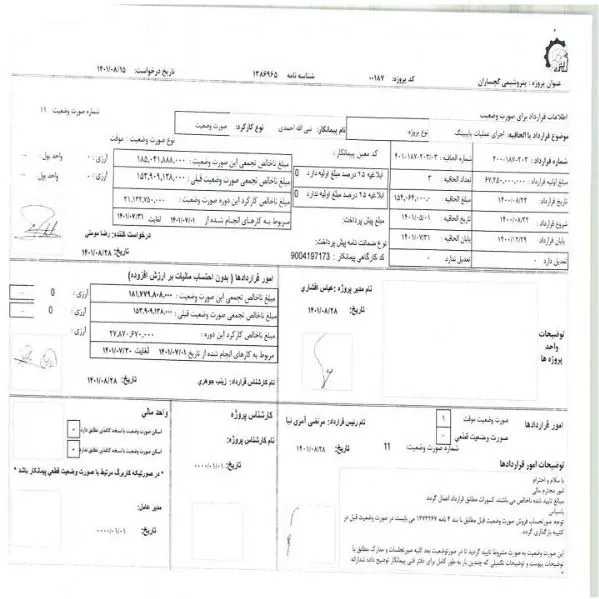 عنوان پروژه : پتروشیمی گچساران
کد پروژه: ۰۰۱۸۷
شناسه نامه ۱۳۸۶۹۶۵
تاریخ درخواست: ۱۴۰۱/۰۸/۱۵
اطلاعات قرارداد برای صورت وضعیت
شماره صورت وضعیت ۱۱
موضوع قرارداد یا الحاقیه: اجرای عملیات پایپینگ
نوع پروژه
نام پیمانکار: نبی الله احمدی
نوع کارکرد: صورت وضعیت
نوع صورت وضعیت : موقت
شماره قرارداد : ۴۰۰-۱۸۷-۲۰۳
شماره الحاقیه : ۴۰۱-۱۸۷-۲۰۳/۰۳
کد معین پیمانکار:
مبلغ اولیه قرارداد ۶۷,۲۵۰,۰۰۰,۰۰۰
تعداد الحاقیه ۳
تاریخ قرارداد ۱۴۰۰/۰۸/۲۲
مبلغ الحاقیه
شروع قرارداد ۱۴۰۰/۰۸/۲۲
تاریخ الحاقیه ۱۴۰۱/۰۵/۰۱
پایان قرارداد ۱۴۰۰/۱۲/۲۹
پایان الحاقیه ۱۴۰۱/۰۷/۳۱
تعدیل دارد ۰
تعدیل ندارد ۰
ابلاغیه ۲۵ درصد مبلغ اولیه دارد 0
ابلاغیه ۲۵ درصد مبلغ اولیه ندارد 0
مبلغ پیش پرداخت:
نوع ضمانت نامه پیش پرداخت:
کد کارگاهی پیمانکار : 9004197173
مبلغ ناخالص تجمعی این صورت وضعیت : ۱۸۵,۰۴۱,۸۸۸,۰۰۰
ارزی : ۰
واحد پول -
مبلغ ناخالص تجمعی صورت وضعیت قبلی : ۱۵۳,۹۰۹,۱۳۸,۰۰۰
ارزی : ۰
واحد پول -
مبلغ ناخالص کارکرد این دوره صورت وضعیت : ۳۱,۱۳۲,۷۵۰,۰۰۰
مربوط به کارهای انجام شده از ۱۴۰۱/۰۷/۰۱ لغایت ۱۴۰۱/۰۷/۳۱
درخواست کننده: رضا مومنی
تاریخ: ۱۴۰۱/۰۸/۲۸
توضیحات
واحد
پروژه ها
نام مدیر پروژه :عباس افشاری
تاریخ: ۱۴۰۱/۰۸/۲۸
امور قراردادها ( بدون احتساب مالیات بر ارزش افزوده)
مبلغ ناخالص تجمعی این صورت وضعیت : ۱۸۱,۷۷۹,۸۰۸,۰۰۰
ارزی : 0 -
مبلغ ناخالص تجمعی صورت وضعیت قبلی : ۱۵۳,۹۰۹,۱۳۸,۰۰۰
ارزی : 0 -
مبلغ ناخالص کارکرد این دوره : ۲۷,۸۷۰,۶۷۰,۰۰۰
ارزی :
مربوط به کارهای انجام شده از تاریخ ۱۴۰۱/۰۷/۰۱ لغایت ۱۴۰۱/۰۷/۳۰
نام کارشناس قرارداد: زینب جوهری
تاریخ: ۱۴۰۱/۰۸/۲۸
امور قراردادها
صورت وضعیت موقت ۱
صورت وضعیت قطعی -
شماره صورت وضعیت: 11
نام رئیس قرارداد: مرتضی آمری نیا
تاریخ: ۱۴۰۱/۰۸/۲۸
توضیحات امور قراردادها
با سلام و احترام
امور محترم مالی
مبالغ تایید شده خالص می باشند، کسورات مطابق قرارداد اعمال گردد
باسپاس
کارشناس پروژه
نام کارشناس پروژه:
تاریخ: ۰۰۰۰/۰۱/۰۱
واحد مالی
امکان صورت وضعیت با نسخه کاغذی مطابق دارد -
امکان صورت وضعیت با نسخه کاغذی مطابق ندارد -
* در صورتیکه کاربرگ مرتبط با صورت وضعیت قطعی پیمانکار باشد *
مدیر عامل:
تاریخ: ۰۰۰۰/۰۱/۰۱